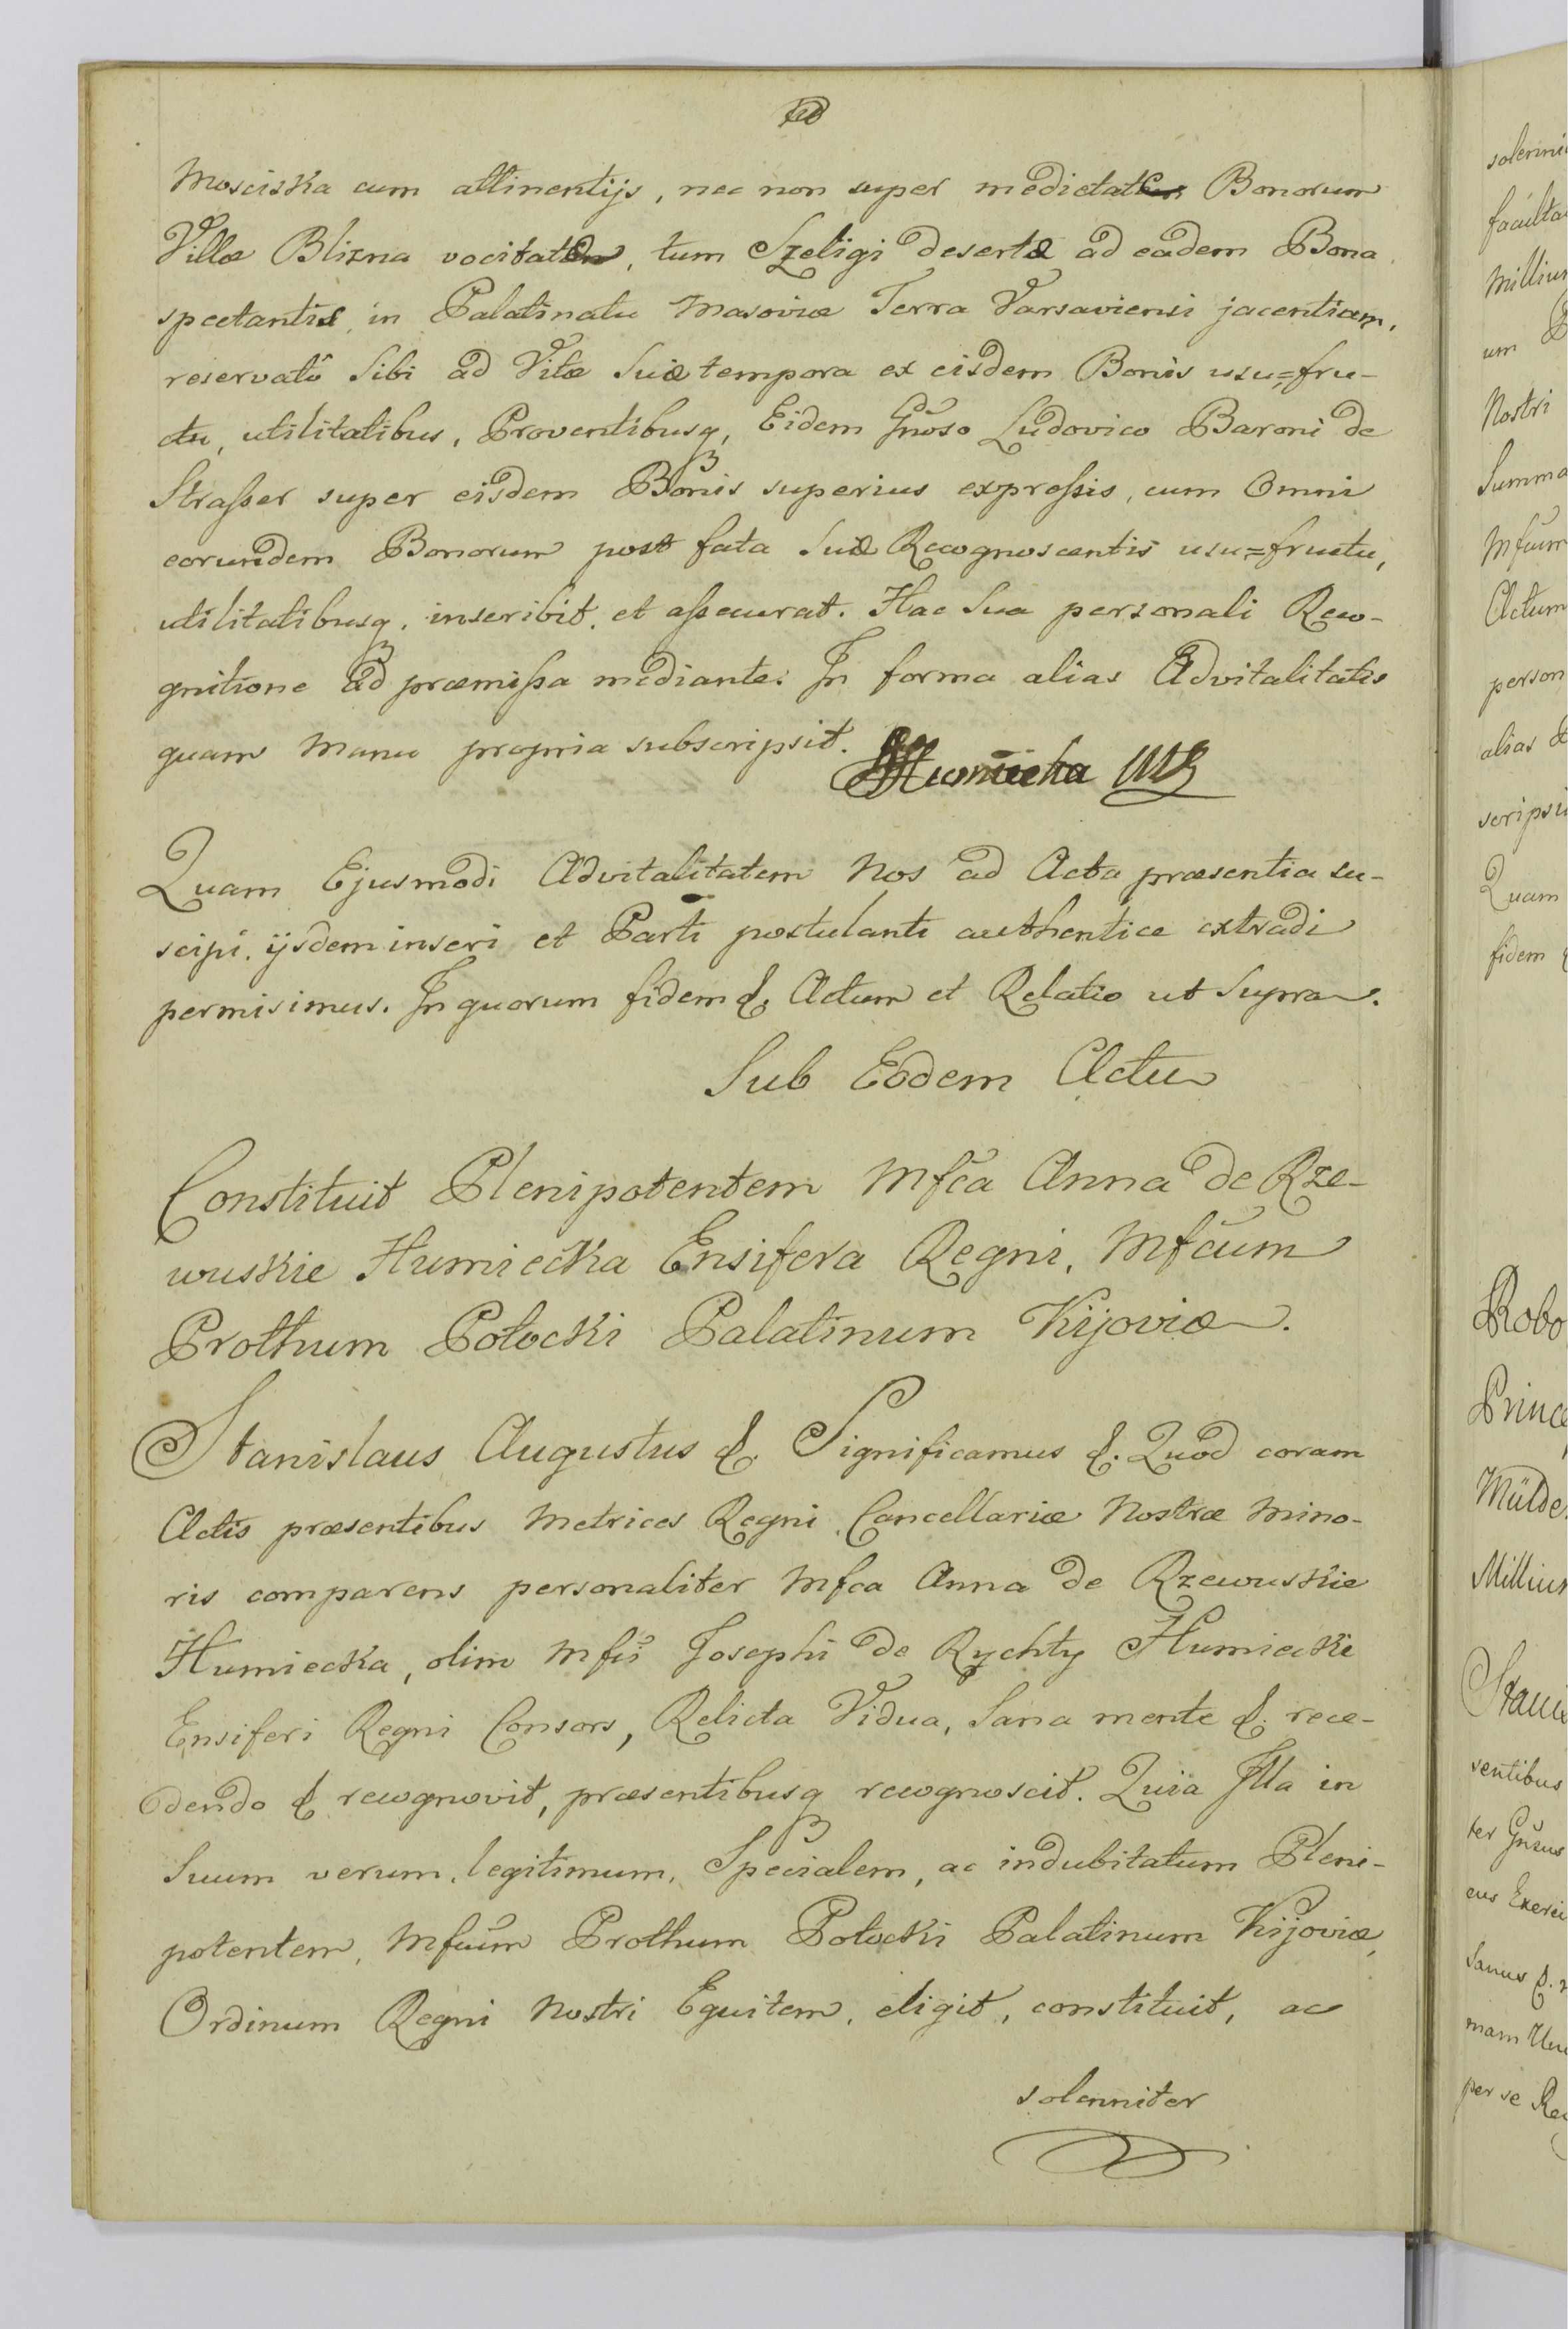 Mosciska cum attinentijs, nec non super medietate Bonorum
Villæ Blizna vocitatæ, tum Szeligi desertæ ad eadem Bona
spectantis, in Palatinatu Masoviæ Terra Varsaviensi jacentiam,
reservatô Sibi ad Vitæ Suæ tempora ex eisdem Bonis usu=fru-
ctu, utilitatibus, Proventibusq, Eidem Gnoso Ludovico Baroni de
Straßer super eisdem Bonis superius expreßis, cum Omni
eorundem Bonorum post fata Suæ Recognoscentis usu=fructu,
utilitatibusq, inscribit, et aßecurat. Hac Sua personali Reco-
gnitione ad præmißa mediante: In forma alias Advitalitatis
quam Manu propria subscripsit. Humiecka MK
Quam Ejusmodi Advitalitatem Nos ad Acta præsentia su-
scipi, ijsdem inseri et Parti postulanti authentice extradi
permisimus. In quorum fidem &. Actum et Relatio ut Supra.
Sub Eodem Actu
Constituit Plenipotentem Mfca Anna de Rze-
wuskie Humiecka Ensifera Regni, Mfcum
Prothum Potocki Palatinum Kijoviæ.
Stanislaus Augustus &. Significamus &. Quod coram
Actis præsentibus Metrices Regni Cancellariæ Nostræ Mino-
ris comparens personaliter Mfca Anna de Rzewuskie
Humiecka, olim Mfci Josephi de Rychty Humiecki
Ensiferi Regni Consors, Relicta Vidua, Sana mente &. rece-
dendo &. recognovit, præsentibusq recognoscit. Quia Illa in
Suum verum, legitimum, Specialem, ac indubitatum Pleni-
potentem, Mfcum Prothum Potocki Palatinum Kijoviæ,
Ordinum Regni Nostri Equitem, eligit, constituit, ac
solenniter